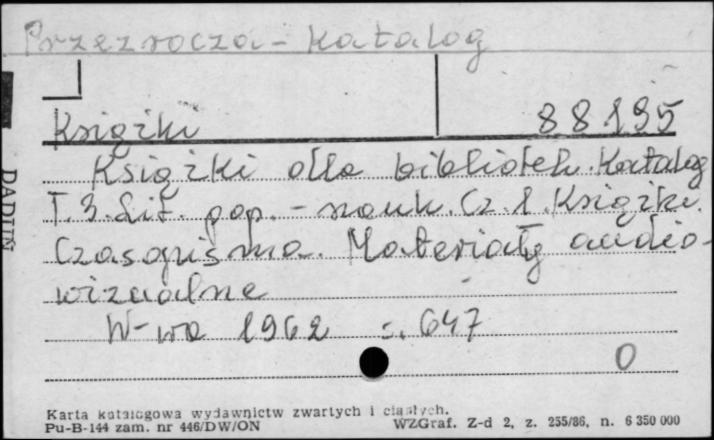 Przezrocza - katalog
Książki 88195
Książki dla bibliotek. Katalog
T. 3. Lit. pop. - nauk. Cz. 1. Książki.
Czasopisma. Materiały audio-
wizualne
W-wa 1962 s. 647
0
DADUŃ
Karta katalogowa wydawnictw zwartych i ciągłych.
Pu-B-144 zam. nr 446/DW/ON WZGraf. Z-d 2, z. 255/86, n. 6 350 000